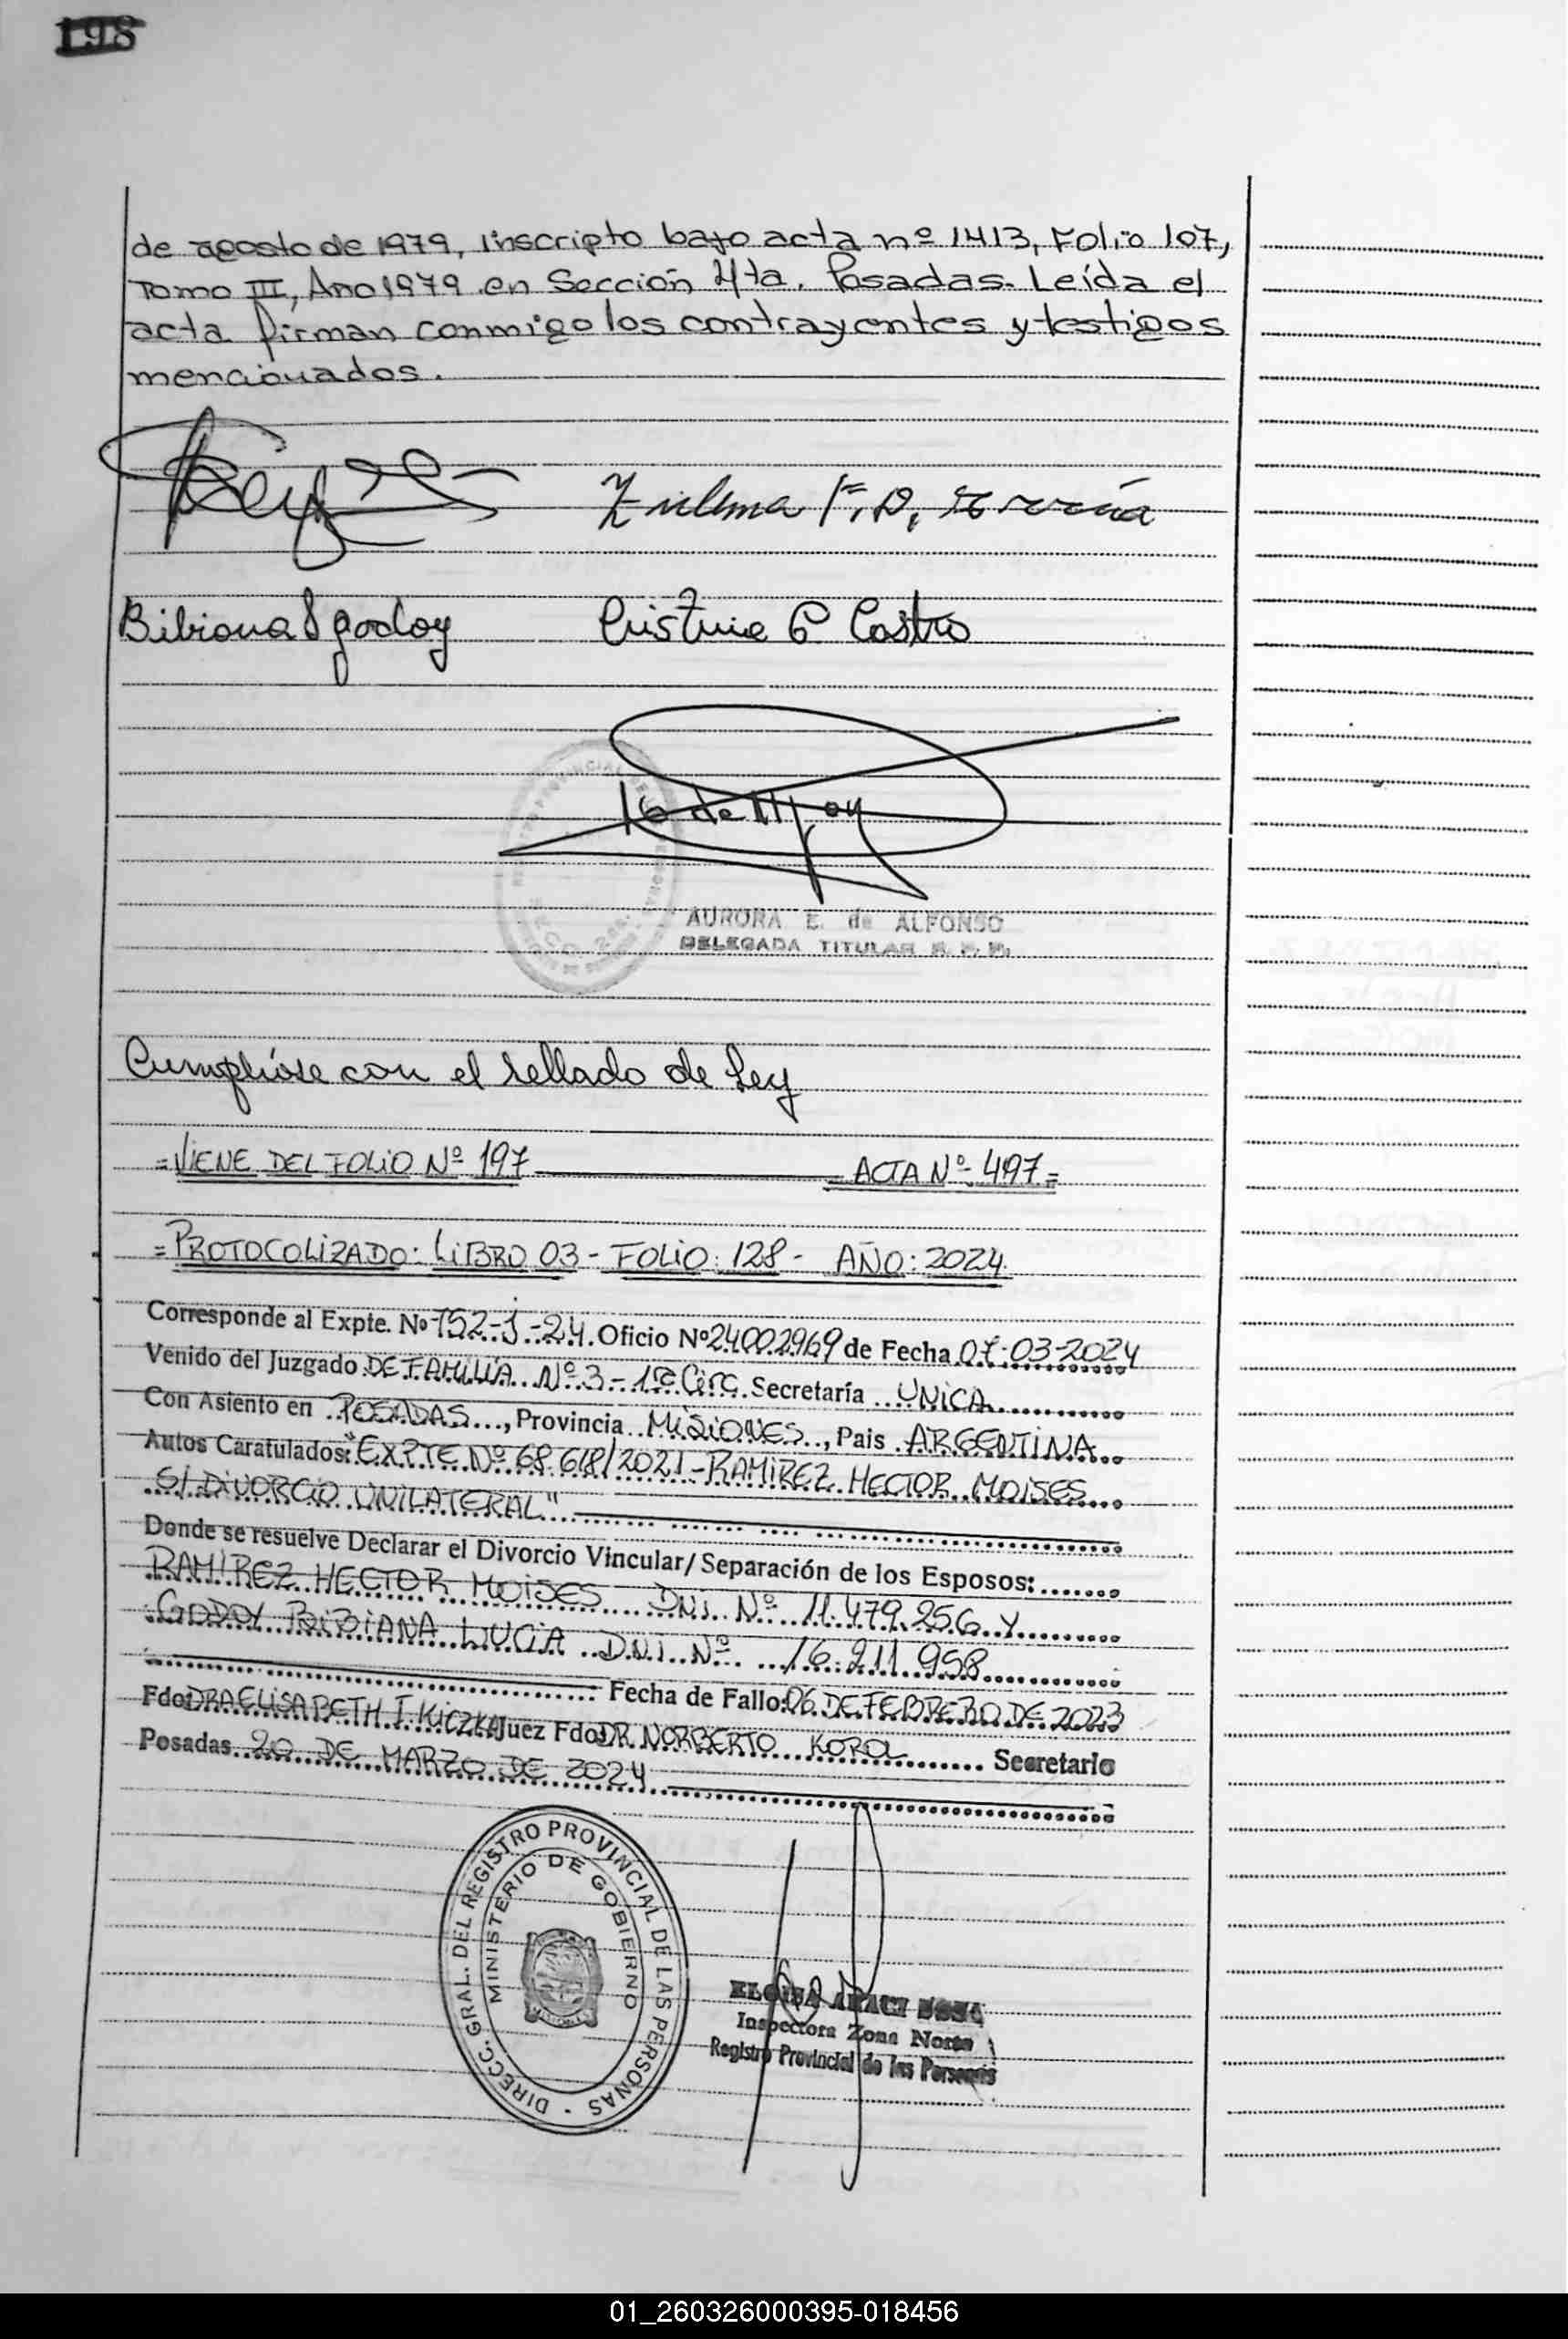 198
de agosto de 1979, inscripto bajo acta nº 1413, Folio 107,
Tomo III, Año 1979 en Sección 4ta. Posadas. Leída el
acta firman conmigo los contrayentes y testigos
mencionados.
Zulema F. D.
Bibiana L godoy Cristina G Castro
AURORA E. de ALFONSO
DELEGADA TITULAR R. P. P.
Cumplióse con el sellado de Ley
=VIENE DEL FOLIO Nº 197 ACTA Nº 497=
=PROTOCOLIZADO: LIBRO 03 - FOLIO: 128 - AÑO: 2024
Corresponde al Expte. Nº 752-J-24. Oficio Nº 24002969 de Fecha 07-03-2024
Venido del Juzgado DE FAMILIA Nº 3 - 1ra Circ. Secretaría UNICA
Con Asiento en POSADAS, Provincia MISIONES, Pais ARGENTINA
Autos Caratulados: "EXPTE Nº 68.618/2021 - RAMIREZ HECTOR MOISES
S/ DIVORCIO UNILATERAL"
Donde se resuelve Declarar el Divorcio Vincular/Separación de los Esposos:
RAMIREZ HECTOR MOISES DNI. Nº 11.479.256 Y
GODOY BIBIANA LUCIA D.N.I. Nº 16.211.958
Fecha de Fallo: 06 DE FEBRERO DE 2023
Fdo: DRA ELISABETH I. KICZKA Juez Fdo DR. NORBERTO KOROL Secretario
Posadas 20 DE MARZO DE 2024
DIRECC. GRAL. DEL REGISTRO PROVINCIAL DE LAS PERSONAS
MINISTERIO DE GOBIERNO
Inspectora Zona Norte
Registro Provincial de las Personas
01_260326000395-018456